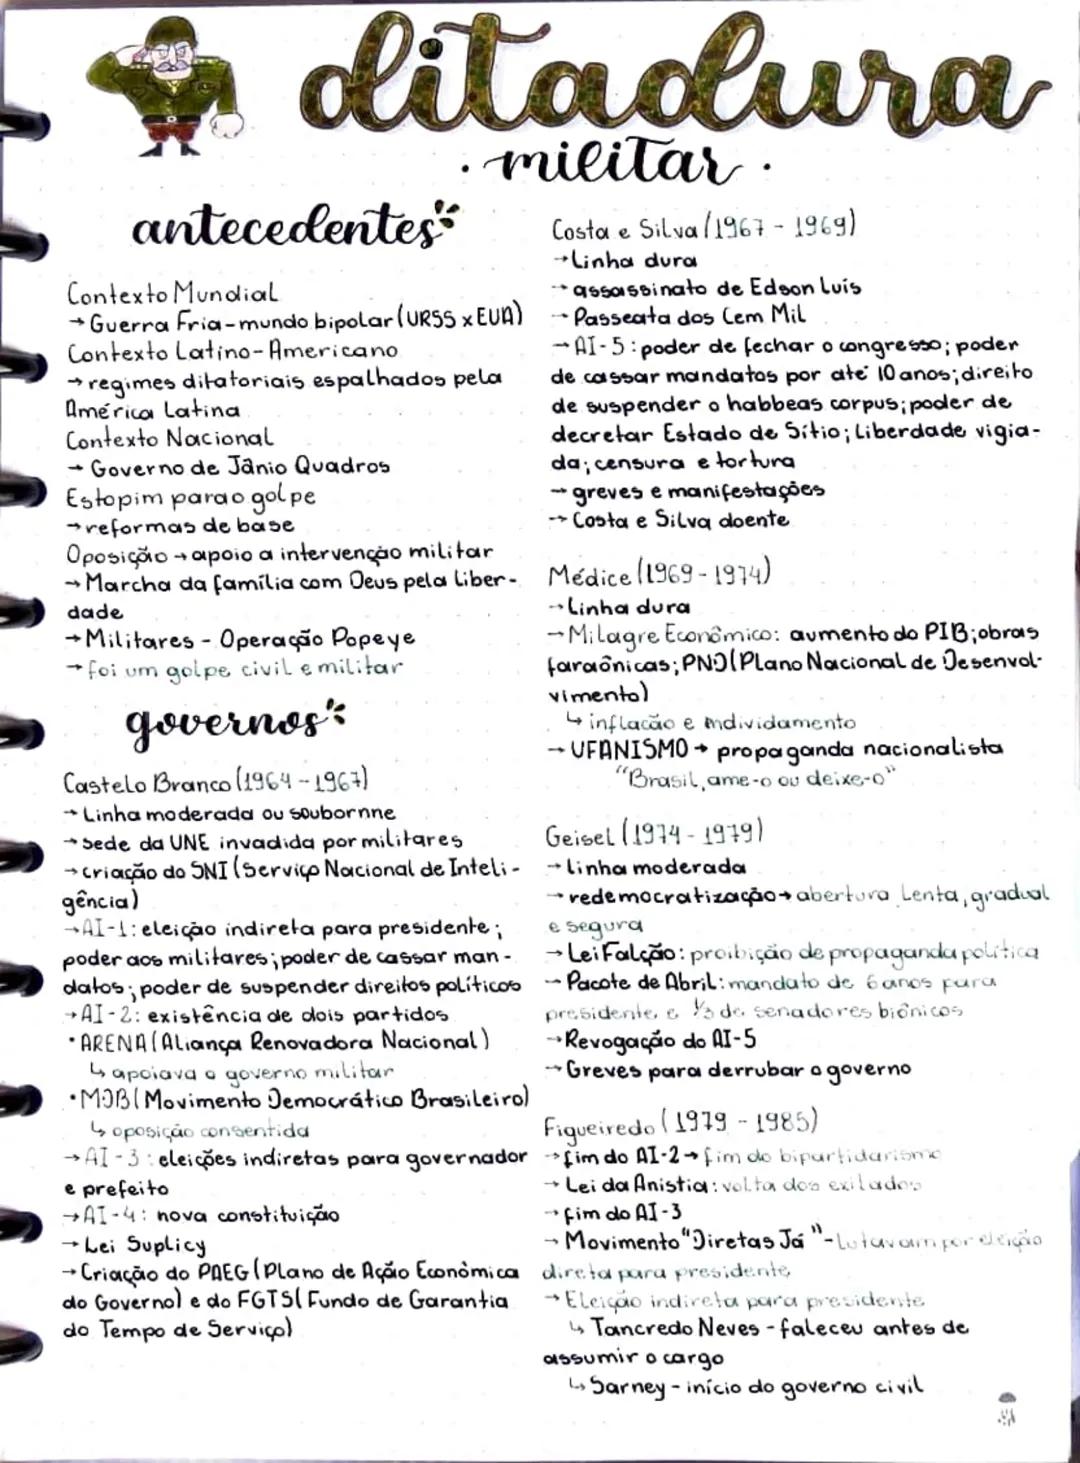 ditadura
· militar ·
antecedentes
Contexto Mundial
→ Guerra Fria - mundo bipolar (URSS x EUA)
Contexto Latino-Americano
→ regimes ditatoriais espalhados pela
América Latina
Contexto Nacional
→ Governo de Jânio Quadros
Estopim para o golpe
→ reformas de base
Oposição → apoio a intervenção militar
→ Marcha da família com Deus pela Liber-
dade
→ Militares - Operação Popeye
→ foi um golpe civil e militar
governos
Castelo Branco (1964 - 1967)
→ Linha moderada ou soubornne
→ sede da UNE invadida por militares
→ criação do SNI (Serviço Nacional de Inteli-
gência)
→ AI-1: eleição indireta para presidente;
poder aos militares; poder de cassar man-
datos; poder de suspender direitos políticos
→ AI-2: existência de dois partidos
• ARENA (Aliança Renovadora Nacional)
↳ apoiava o governo militar
• MDB (Movimento Democrático Brasileiro)
↳ oposição consentida
→ AI-3: eleições indiretas para governador
e prefeito
→ AI-4: nova constituição
→ Lei Suplicy
→ Criação do PAEG (Plano de Ação Econômica
do Governo) e do FGTS (Fundo de Garantia
do Tempo de Serviço)
Costa e Silva (1967 - 1969)
→ Linha dura
→ assassinato de Edson Luís
→ Passeata dos Cem Mil
→ AI-5: poder de fechar o congresso; poder
de cassar mandatos por até 10 anos; direito
de suspender o habbeas corpus; poder de
decretar Estado de Sítio; Liberdade vigia-
da; censura e tortura
→ greves e manifestações
→ Costa e Silva doente
Médice (1969 - 1974)
→ Linha dura
→ Milagre Econômico: aumento do PIB; obras
faraônicas; PND (Plano Nacional de Desenvol-
vimento)
↳ inflacão e endividamento
→ UFANISMO → propaganda nacionalista
"Brasil, ame-o ou deixe-o"
Geisel (1974 - 1979)
→ linha moderada
→ redemocratização → abertura Lenta, gradual
e segura
→ Lei Falcão: proibição de propaganda política
→ Pacote de Abril: mandato de 6 anos para
presidente e 1/3 de senadores biônicos
→ Revogação do AI-5
→ Greves para derrubar o governo
Figueiredo (1979 - 1985)
→ fim do AI-2 → fim do bipartidarismo
→ Lei da Anistia: volta dos exilados
→ fim do AI-3
→ Movimento "Diretas Já" - Lutavam por eleição
direta para presidente
→ Eleição indireta para presidente
↳ Tancredo Neves - faleceu antes de
assumir o cargo
↳ Sarney - início do governo civil